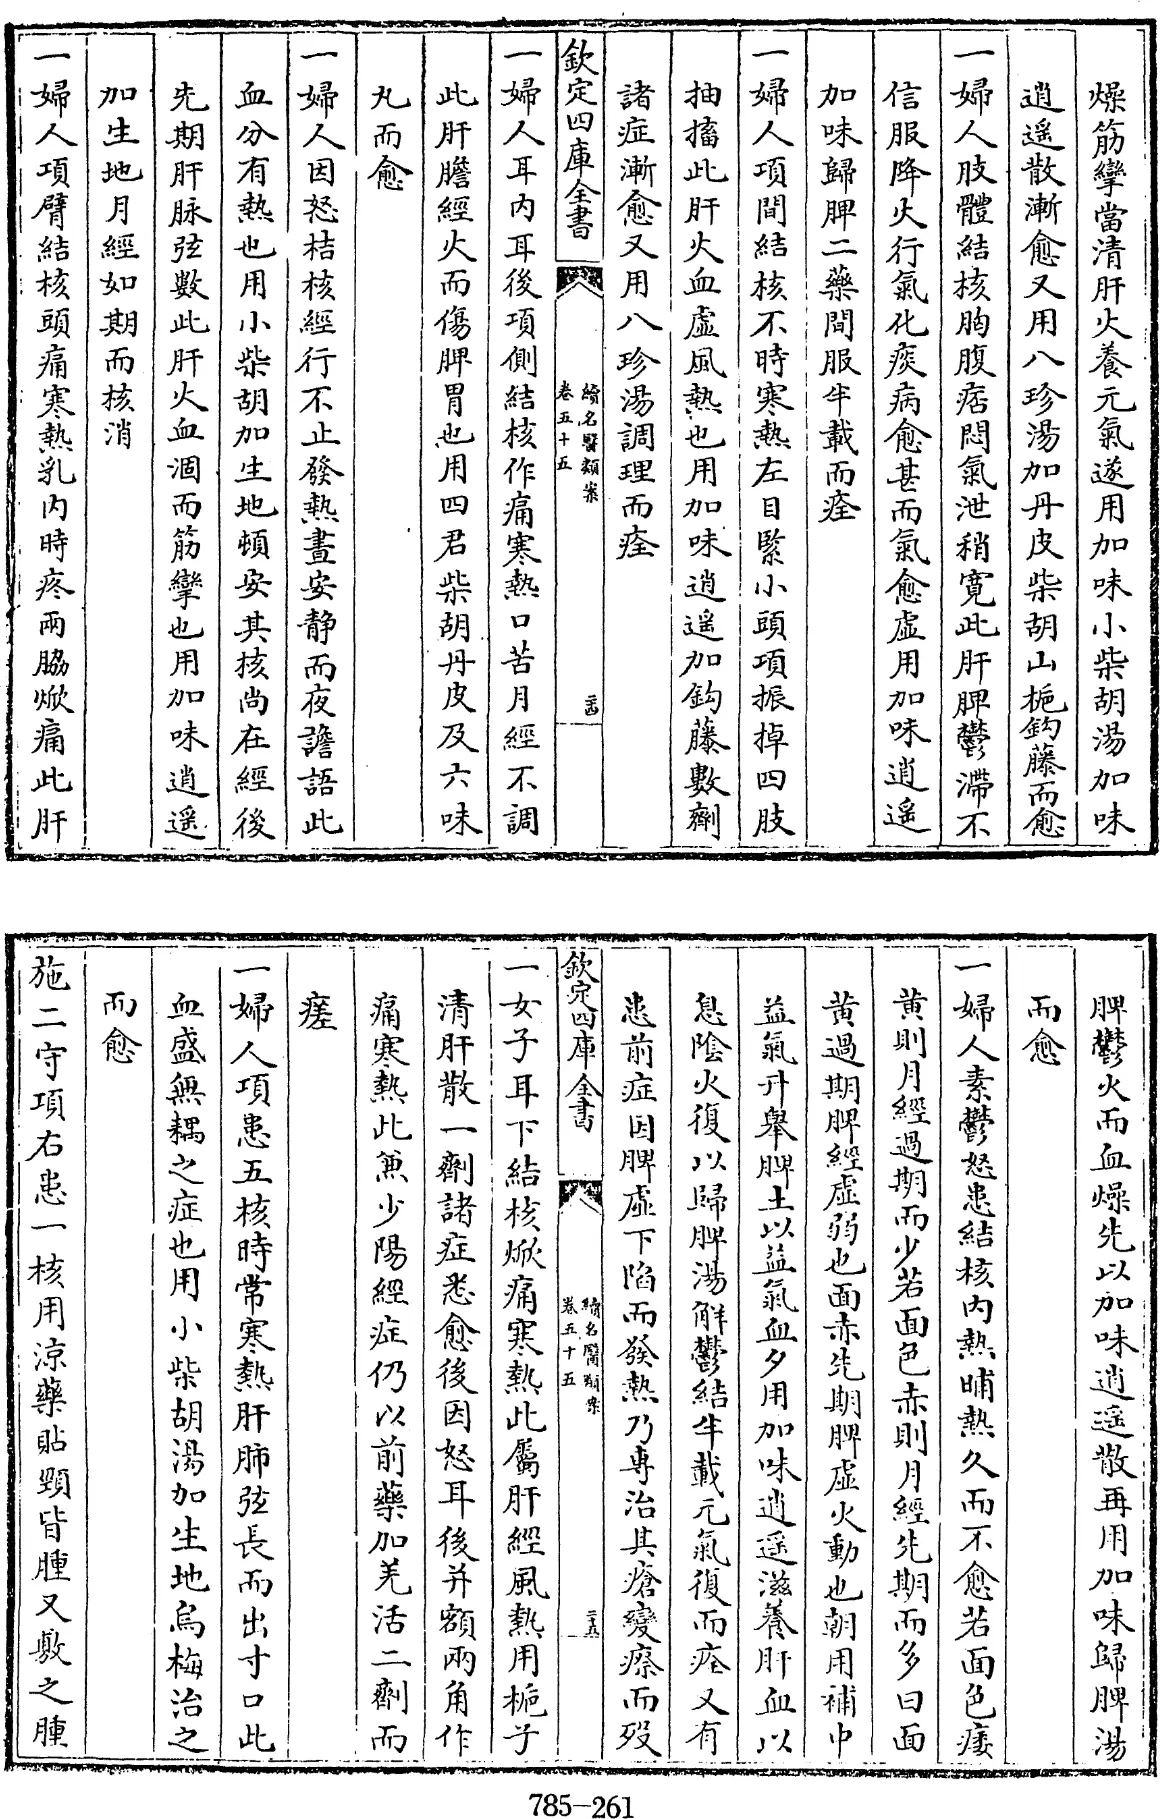 燥筋攣當清肝火養元氣遂用加味小柴胡湯加味
逍遥散漸愈又用八珍湯加丹皮柴胡山梔鈎藤而愈
一婦人肢體結核胸腹痞悶氣泄稍寛此肝脾鬱滯不
信服降火行氣化痰病愈甚而氣愈虛用加味逍遥
加味歸脾二藥間服半載而痊
一婦人項間結核不時寒熱左目緊小頭項振掉四肢
抽搐此肝火血虛風熱也用加味逍遥加鈎藤數劑
諸症漸愈又用八珍湯調理而痊
欽定四庫全書
續名醫類案
卷五十五
二十四
一婦人耳内耳後項側結核作痛寒熱口苦月經不調
此肝膽經火而傷脾胃也用四君柴胡丹皮及六味
丸而愈
一婦人因怒桔核經行不止發熱晝安静而夜譫語此
血分有熱也用小柴胡加生地頓安其核尚在經後
先期肝脉弦數此肝火血涸而筋攣也用加味逍遥
加生地月經如期而核消
一婦人項臂結核頭痛寒熱乳内時疼兩脇焮痛此肝
脾鬱火而血燥先以加味逍遥散再用加味歸脾湯
而愈
一婦人素鬱怒患結核内熱晡熱久而不愈若面色痿
黄則月經過期而少若面色赤則月經先期而多曰面
黄過期脾經虛弱也面赤先期脾虛火動也朝用補中
益氣升舉脾土以益氣血夕用加味逍遥滋養肝血以
息陰火復以歸脾湯解鬱結半載元氣復而痊又有
患前症因脾虛下陷而發熱乃專治其瘡變瘵而殁
欽定四庫全書
續名醫類案
卷五十五
二十五
一女子耳下結核焮痛寒熱此屬肝經風熱用梔子
清肝散一劑諸症悉愈後因怒耳後并額兩角作
痛寒熱此兼少陽經症仍以前藥加羌活二劑而
瘥
一婦人項患五核時常寒熱肝肺弦長而出寸口此
血盛無耦之症也用小柴胡湯加生地烏梅治之
而愈
施二守項右患一核用涼藥貼頸皆腫又敷之腫
785-261